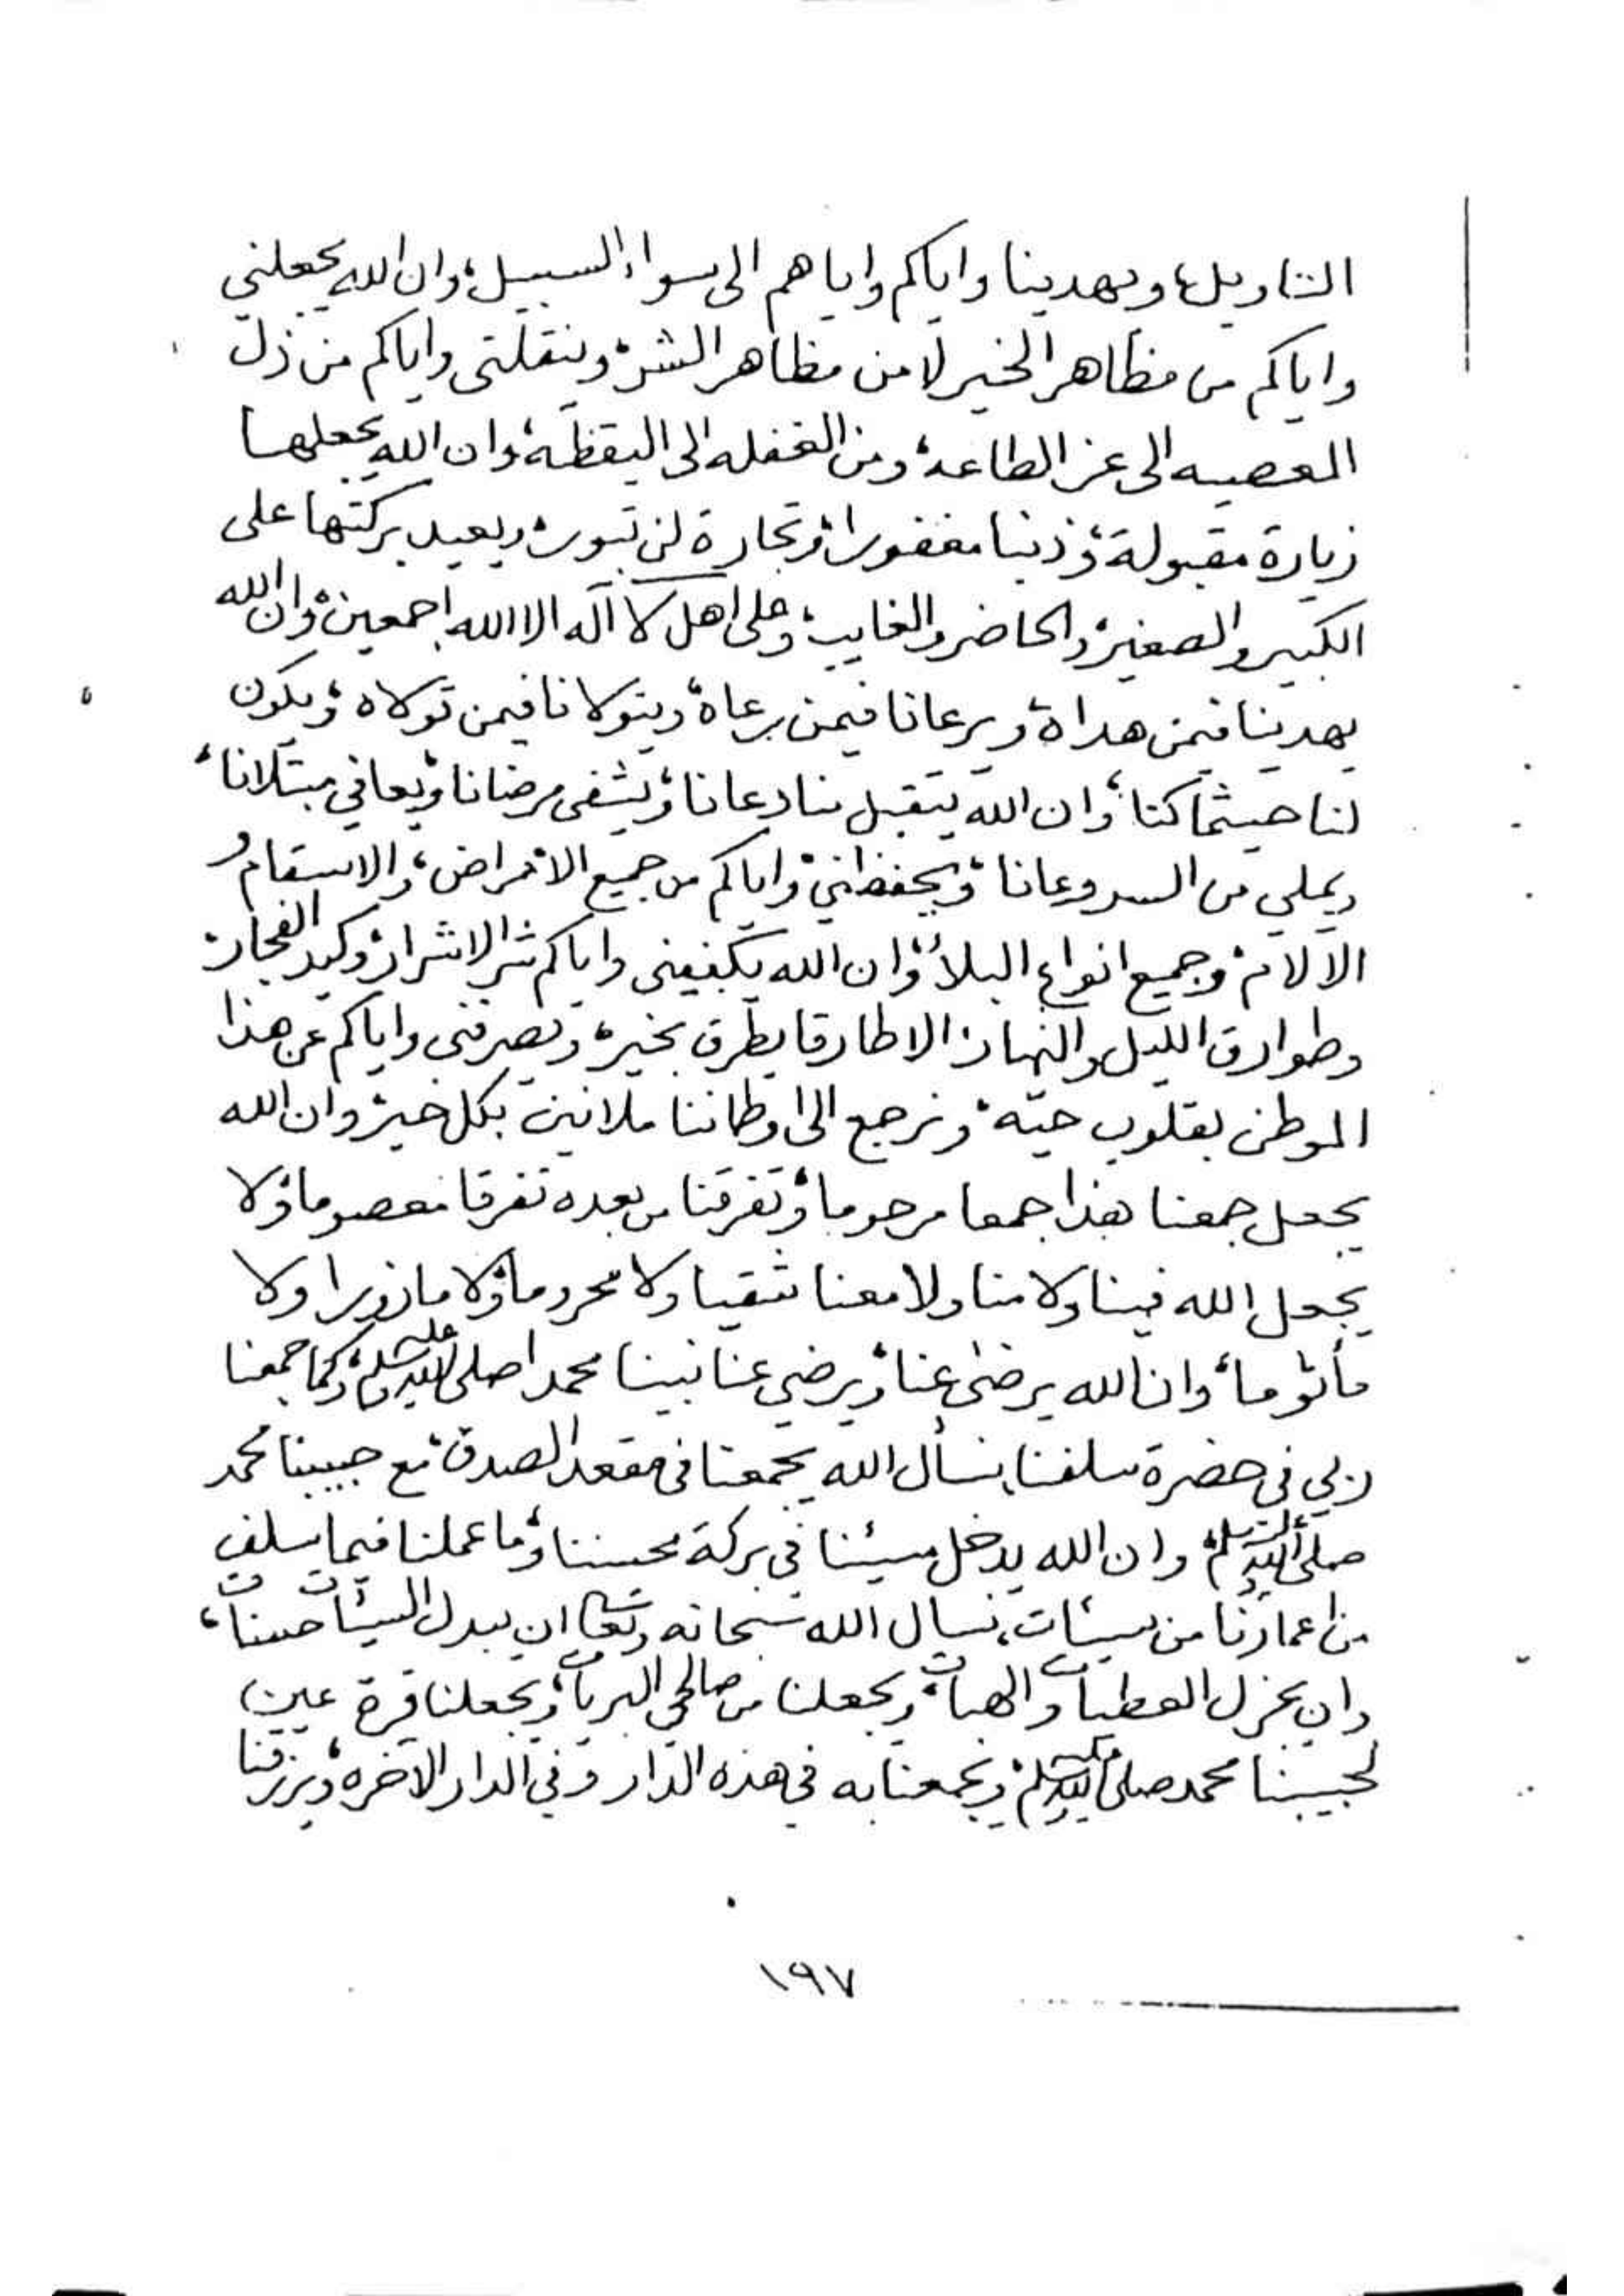 التاويل، ويهدينا واياكم واياهم الى سواء السبيل، وان الله يجعلني
واياكم من مظاهر الخير لا من مظاهر الشر، وينقلني واياكم من ذل
المعصيه الى عز الطاعة، ومن الغفله الى اليقظة، وان الله يجعلها
زيارة مقبولة، وذنبا مغفورا، وتجارة لن تبور، ويعيد بركتها على
الكبير والصغير، والحاضر والغايب، وعلى اهل لا آله الا الله اجمعين، وان الله
يهدينا فيمن هداه، ويرعانا فيمن يرعاه، ويتولانا فيمن تولاه، ويكون
لنا حيثما كنا، وان الله يتقبل منا دعانا، ويشفى مرضانا، ويعافي مبتلانا،
ويملي من السر وعانا، ويحفظني واياكم من جميع الامراض، والاسقام و
الآلام، وجميع انواع البلاء، وان الله يكفيني واياكم شر الاشرار، وكيد الفجار،
وطوارق الليل والنهار، الا طارقا يطرق بخير، ويصرفني واياكم عن هذا
الموطن بقلوب حيّه، ونرجع الى اوطاننا ملانين بكل خير، وان الله
يجعل جمعنا هذا جمعا مرحوما، وتفرقنا من بعده تفرقا معصوما، ولا
يجعل الله فينا ولا منا ولا معنا شقيا ولا محروما، ولا مازورا ولا
مأثوما، وان الله يرضى عنا، ويرضي عنا نبينا محمدا صلى الله عليه وسلم، وكما جمعنا
ربي في حضرة سلفنا، نسأل الله يجمعنا في مقعد الصدق مع حبيبنا محمد
صلى الله عليه وسلم، وان الله يدخل مسيئنا في بركة محسننا، وما عملنا فيما سلف
من اعمارنا من سيئات، نسال الله سبحانه وتعالى ان يبدل السيئات حسنات،
وان يجزل العطيات والهبات، ويجعلنا من صالحي البريات، ويجعلنا قرة عين
لحبيبنا محمد صلى الله عليه وسلم، ويجمعنا به في هذه الدار وفي الدار الآخره، ويرزقنا
١٩٧